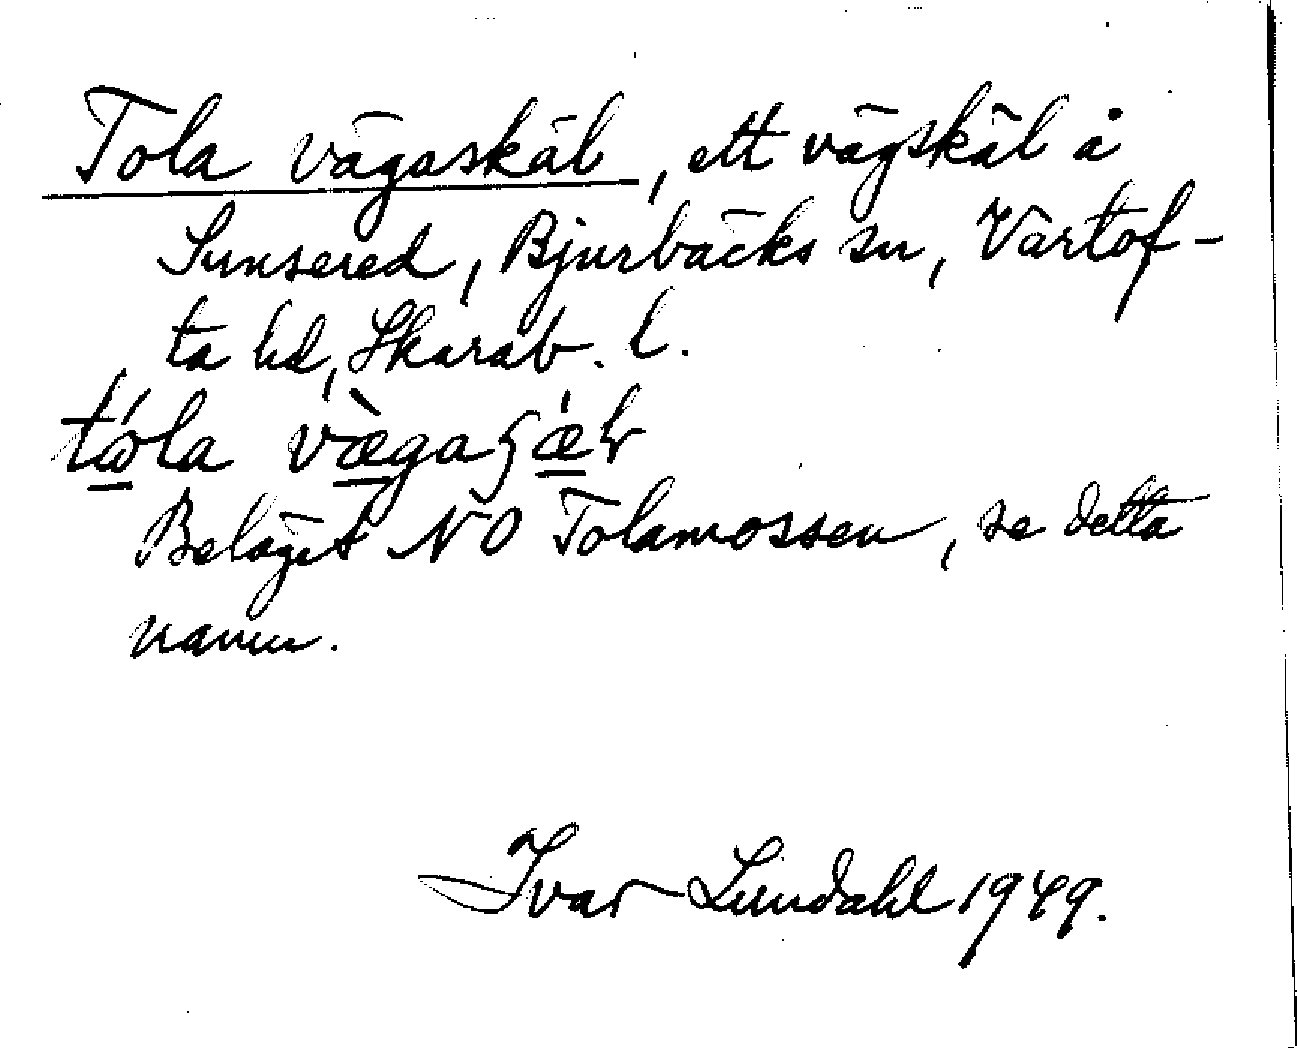 Tola vägaskäl, ett vägskäl å
Sunsered, Bjurbäcks sn, Vartof-
ta hd, Skarab. l.
tóla vægaʂæl
Beläget NO Tolamossen, se detta
namn.
Ivar Lundahl 1949.